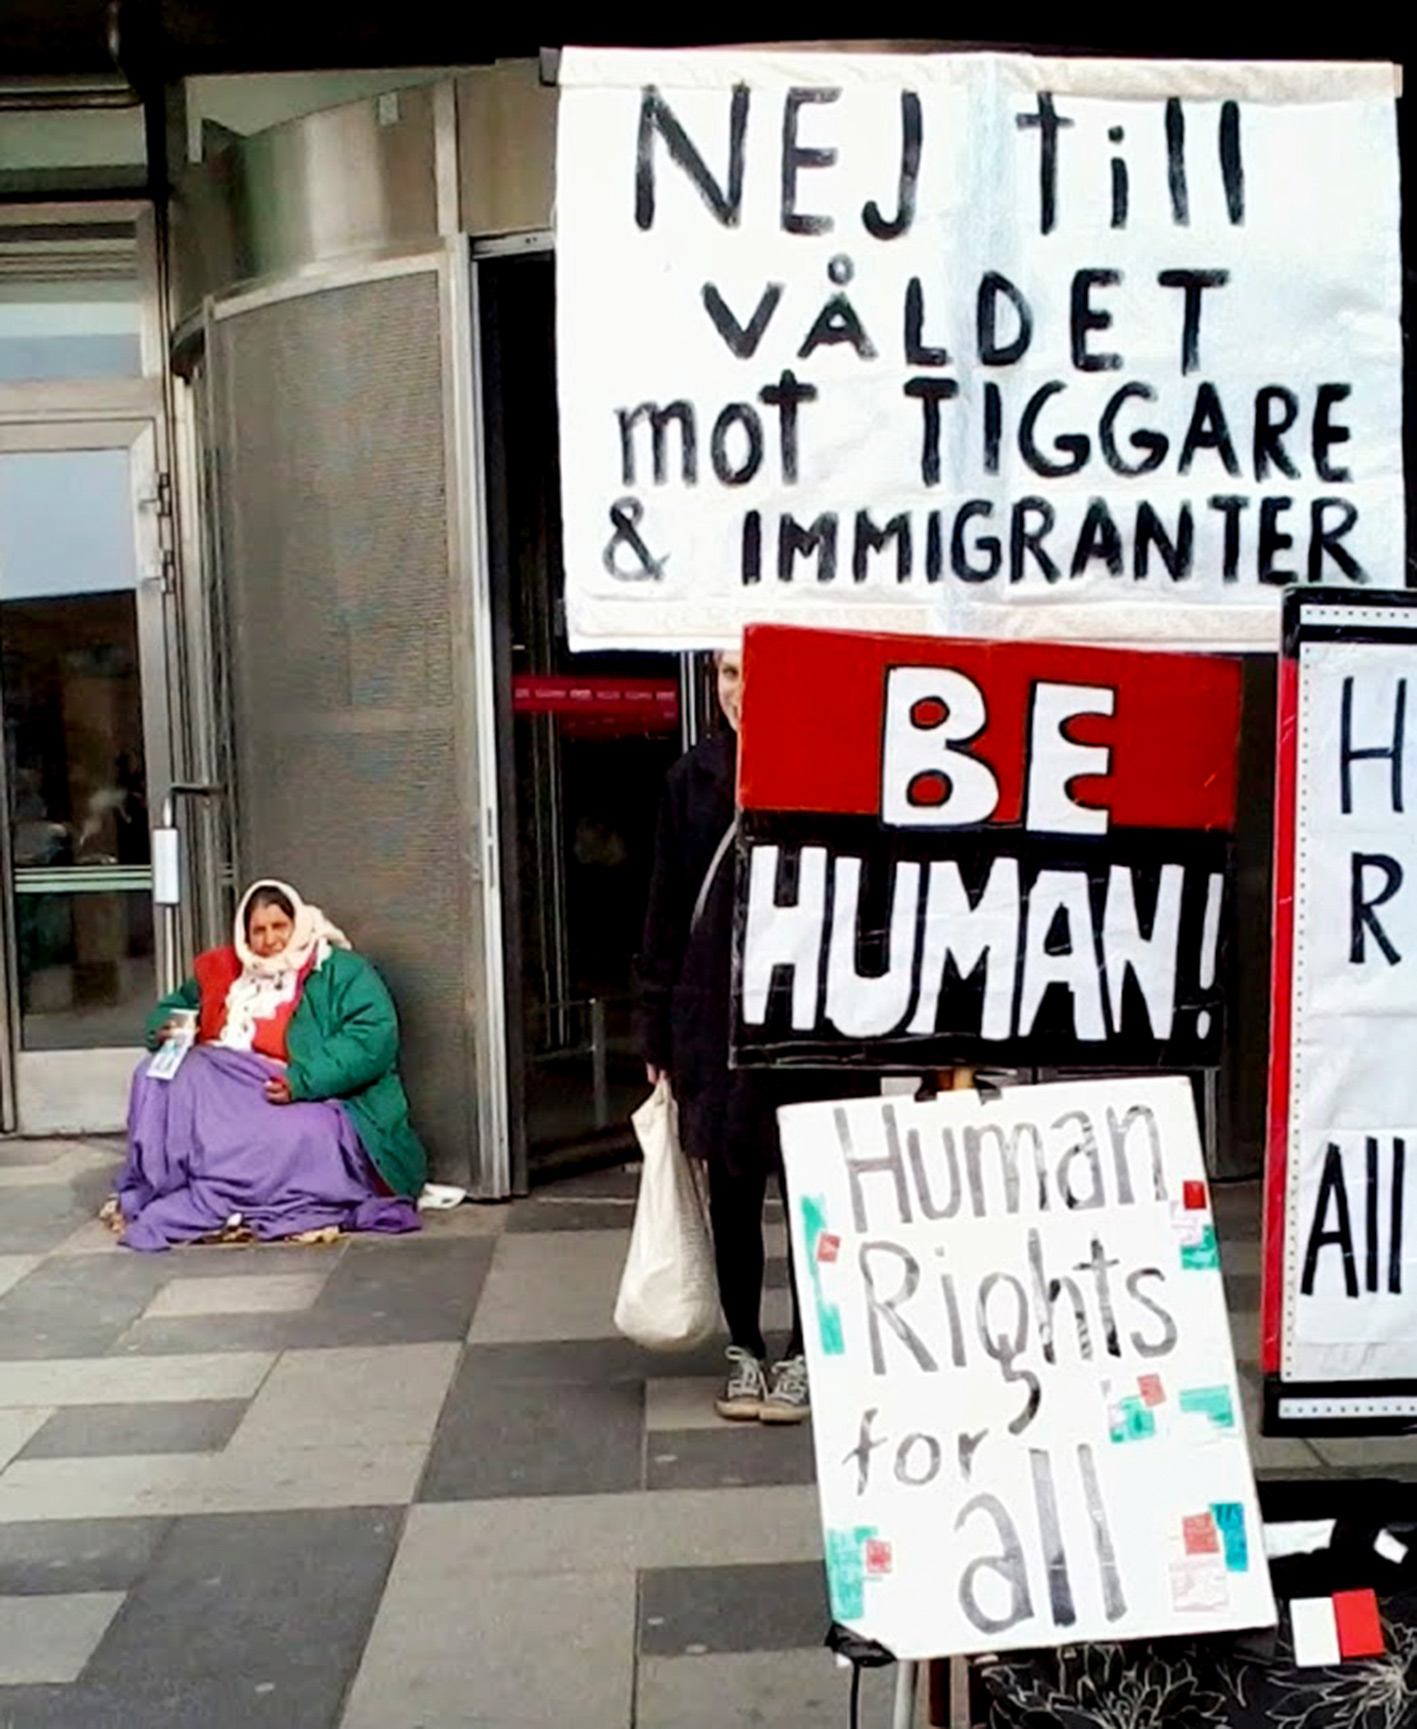 NEJ till
VÅLDET
mot TIGGARE
& IMMIGRANTER
BE
HUMAN!
Human
Rights
for
all
H
R
All